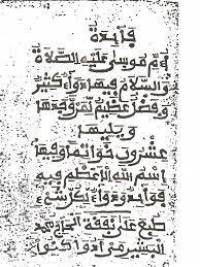 فائدة
لام موسى عليه الصلاة
والسلام فيها دواء كثير
وفضل عظيم لمن وجدها
ويليها
عشرون خواتما وفيها
اسم الله الأعظم فيه
فوائد ودواء لكل شيء
طبع على نفقة الحاج محمد
البشير